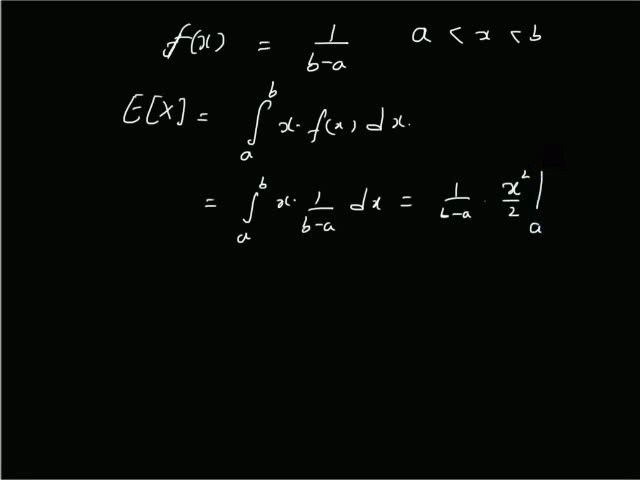 f(x) = 1/(b-a) a < x < b
E[X] = ∫_a^b x · f(x) dx.
= ∫_a^b x · 1/(b-a) dx = 1/(b-a) · x²/2 |_a